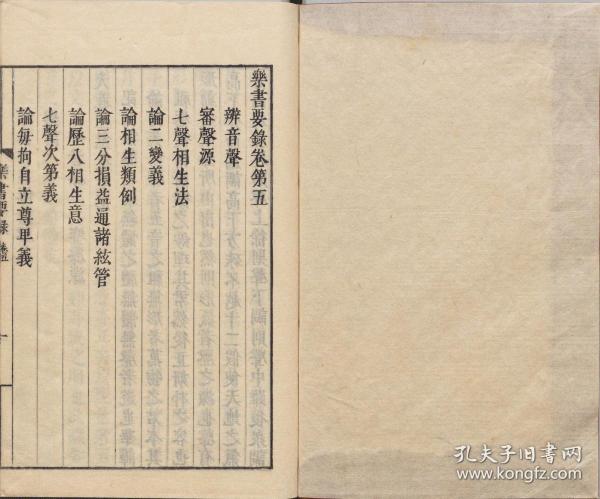 樂書要錄卷第五
辨音聲
審聲源
七聲相生法
論二變義
論相生類例
論三分損益通諸絃管
論歷八相生意
七聲次第義
論每拘自立尊卑義
樂書要錄 卷五
一
孔夫子旧书网
www.kongfz.com